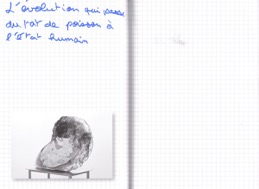 L'évolution qui passe
du têt de poisson à
l'état humain